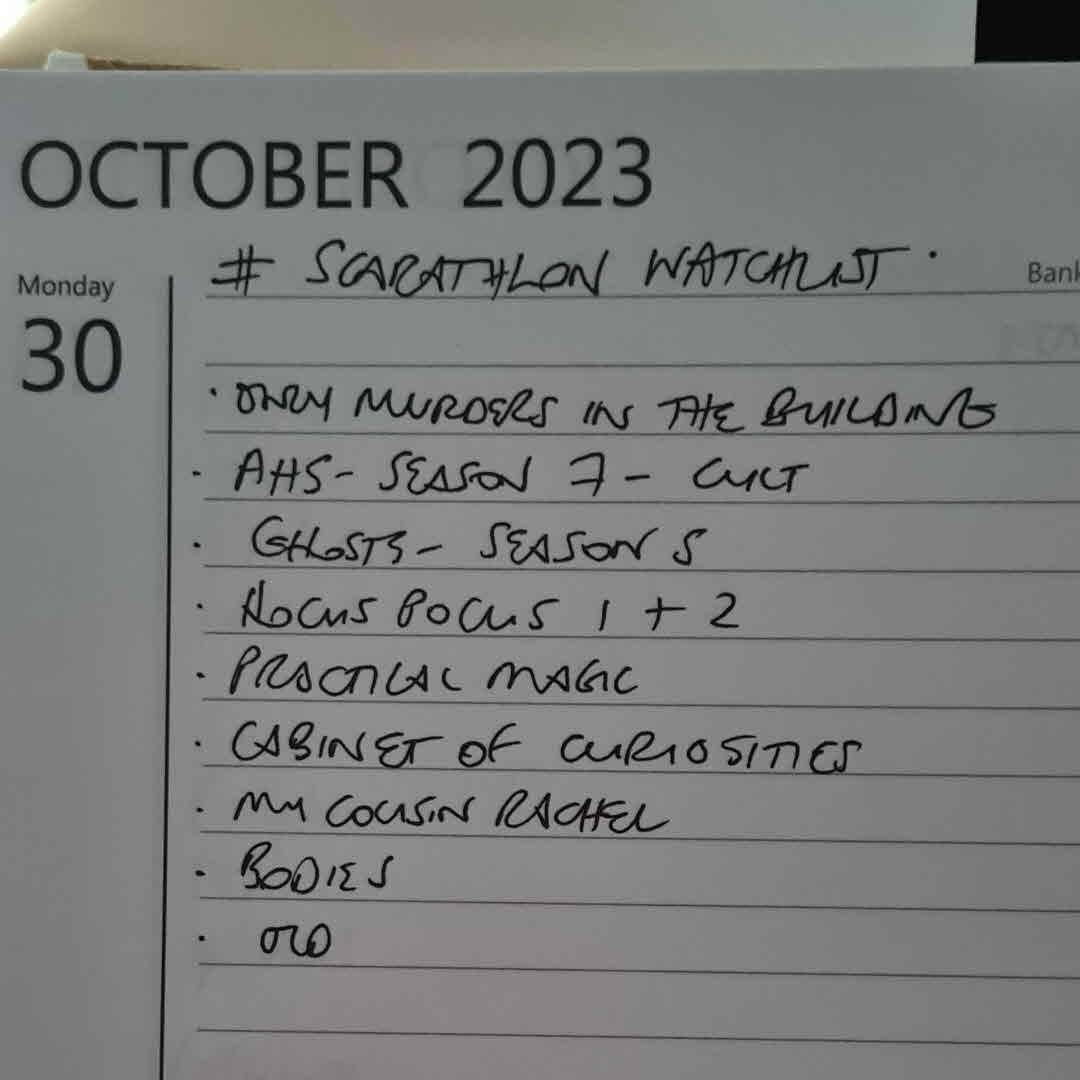 OCTOBER 2023
# SCARATHLON WATCHLIST.
Monday
Bank
30
· ONLY MURDERS IN THE BUILDING
· AHS - SEASON 7 - CULT
· GHOSTS - SEASON 5
· HOCUS POCUS 1 + 2
· PRACTICAL MAGIC
· CABINET OF CURIOSITIES
· MY COUSIN RACHEL
· BODIES
· OLD